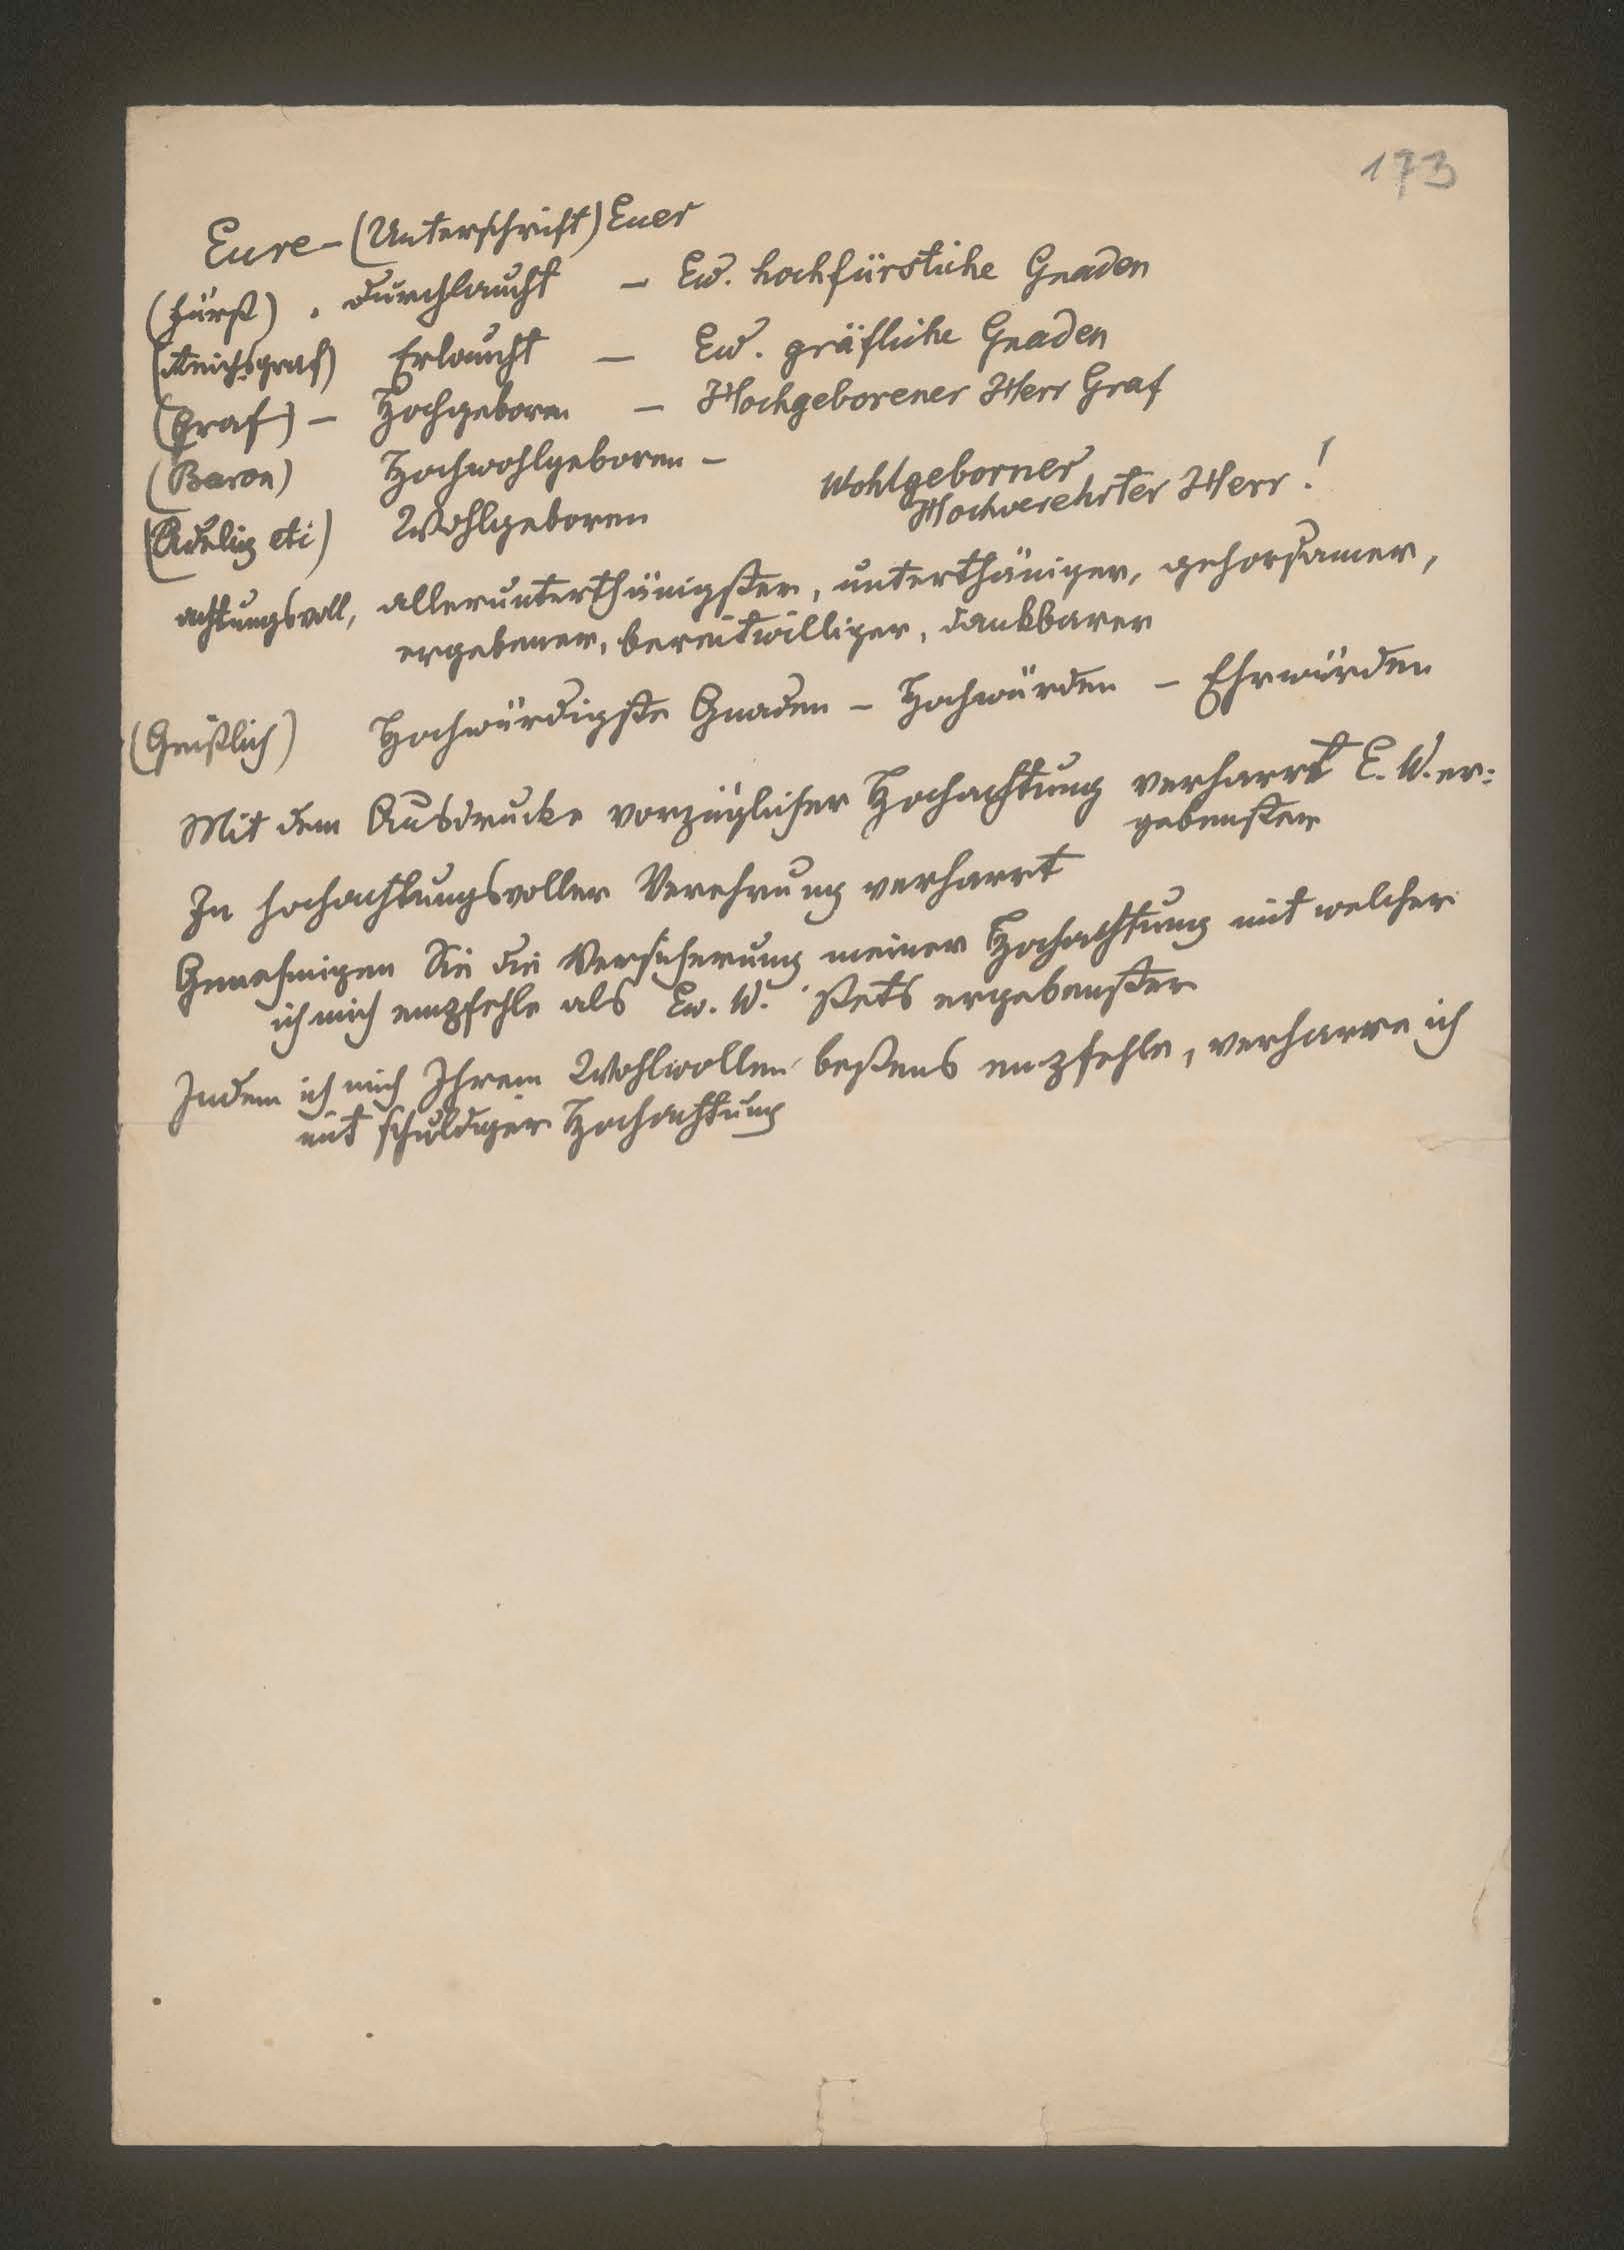 173
Eure – (Unterschrift) Euer
(Fürst) . Durchlaucht – Ew. hochfürstliche Gnaden
(Reichsgraf) Erlaucht – Ew. gräfliche Gnaden
(Graf) – Hochgeboren – Hochgeborener Herr Graf
(Baron) Hochwohlgeboren –
Wohlgeborner
(Adelig etc) Wohlgeboren Hochverehrter Herr!
achtungsvoll, alleruntertänigster, unterthäniger, gehorsamer,
ergebener, bereitwilliger, dankbarer
(Geistlich) Hochwürdigste Gnaden – Hochwürden – Ehrwürden
Mit dem Ausdrucke vorzüglicher Hochachtung verharrt E. W. er=
gebenster
In hochachtungsvoller Verehrung verharrt
Genehmigen Sie die Versicherung meiner Hochachtung mit welcher
ich mich empfehle als Ew. W. stets ergebenster
Indem ich mich Ihrem Wohlwollen bestens empfehle, verharre ich
mit schuldiger Hochachtung